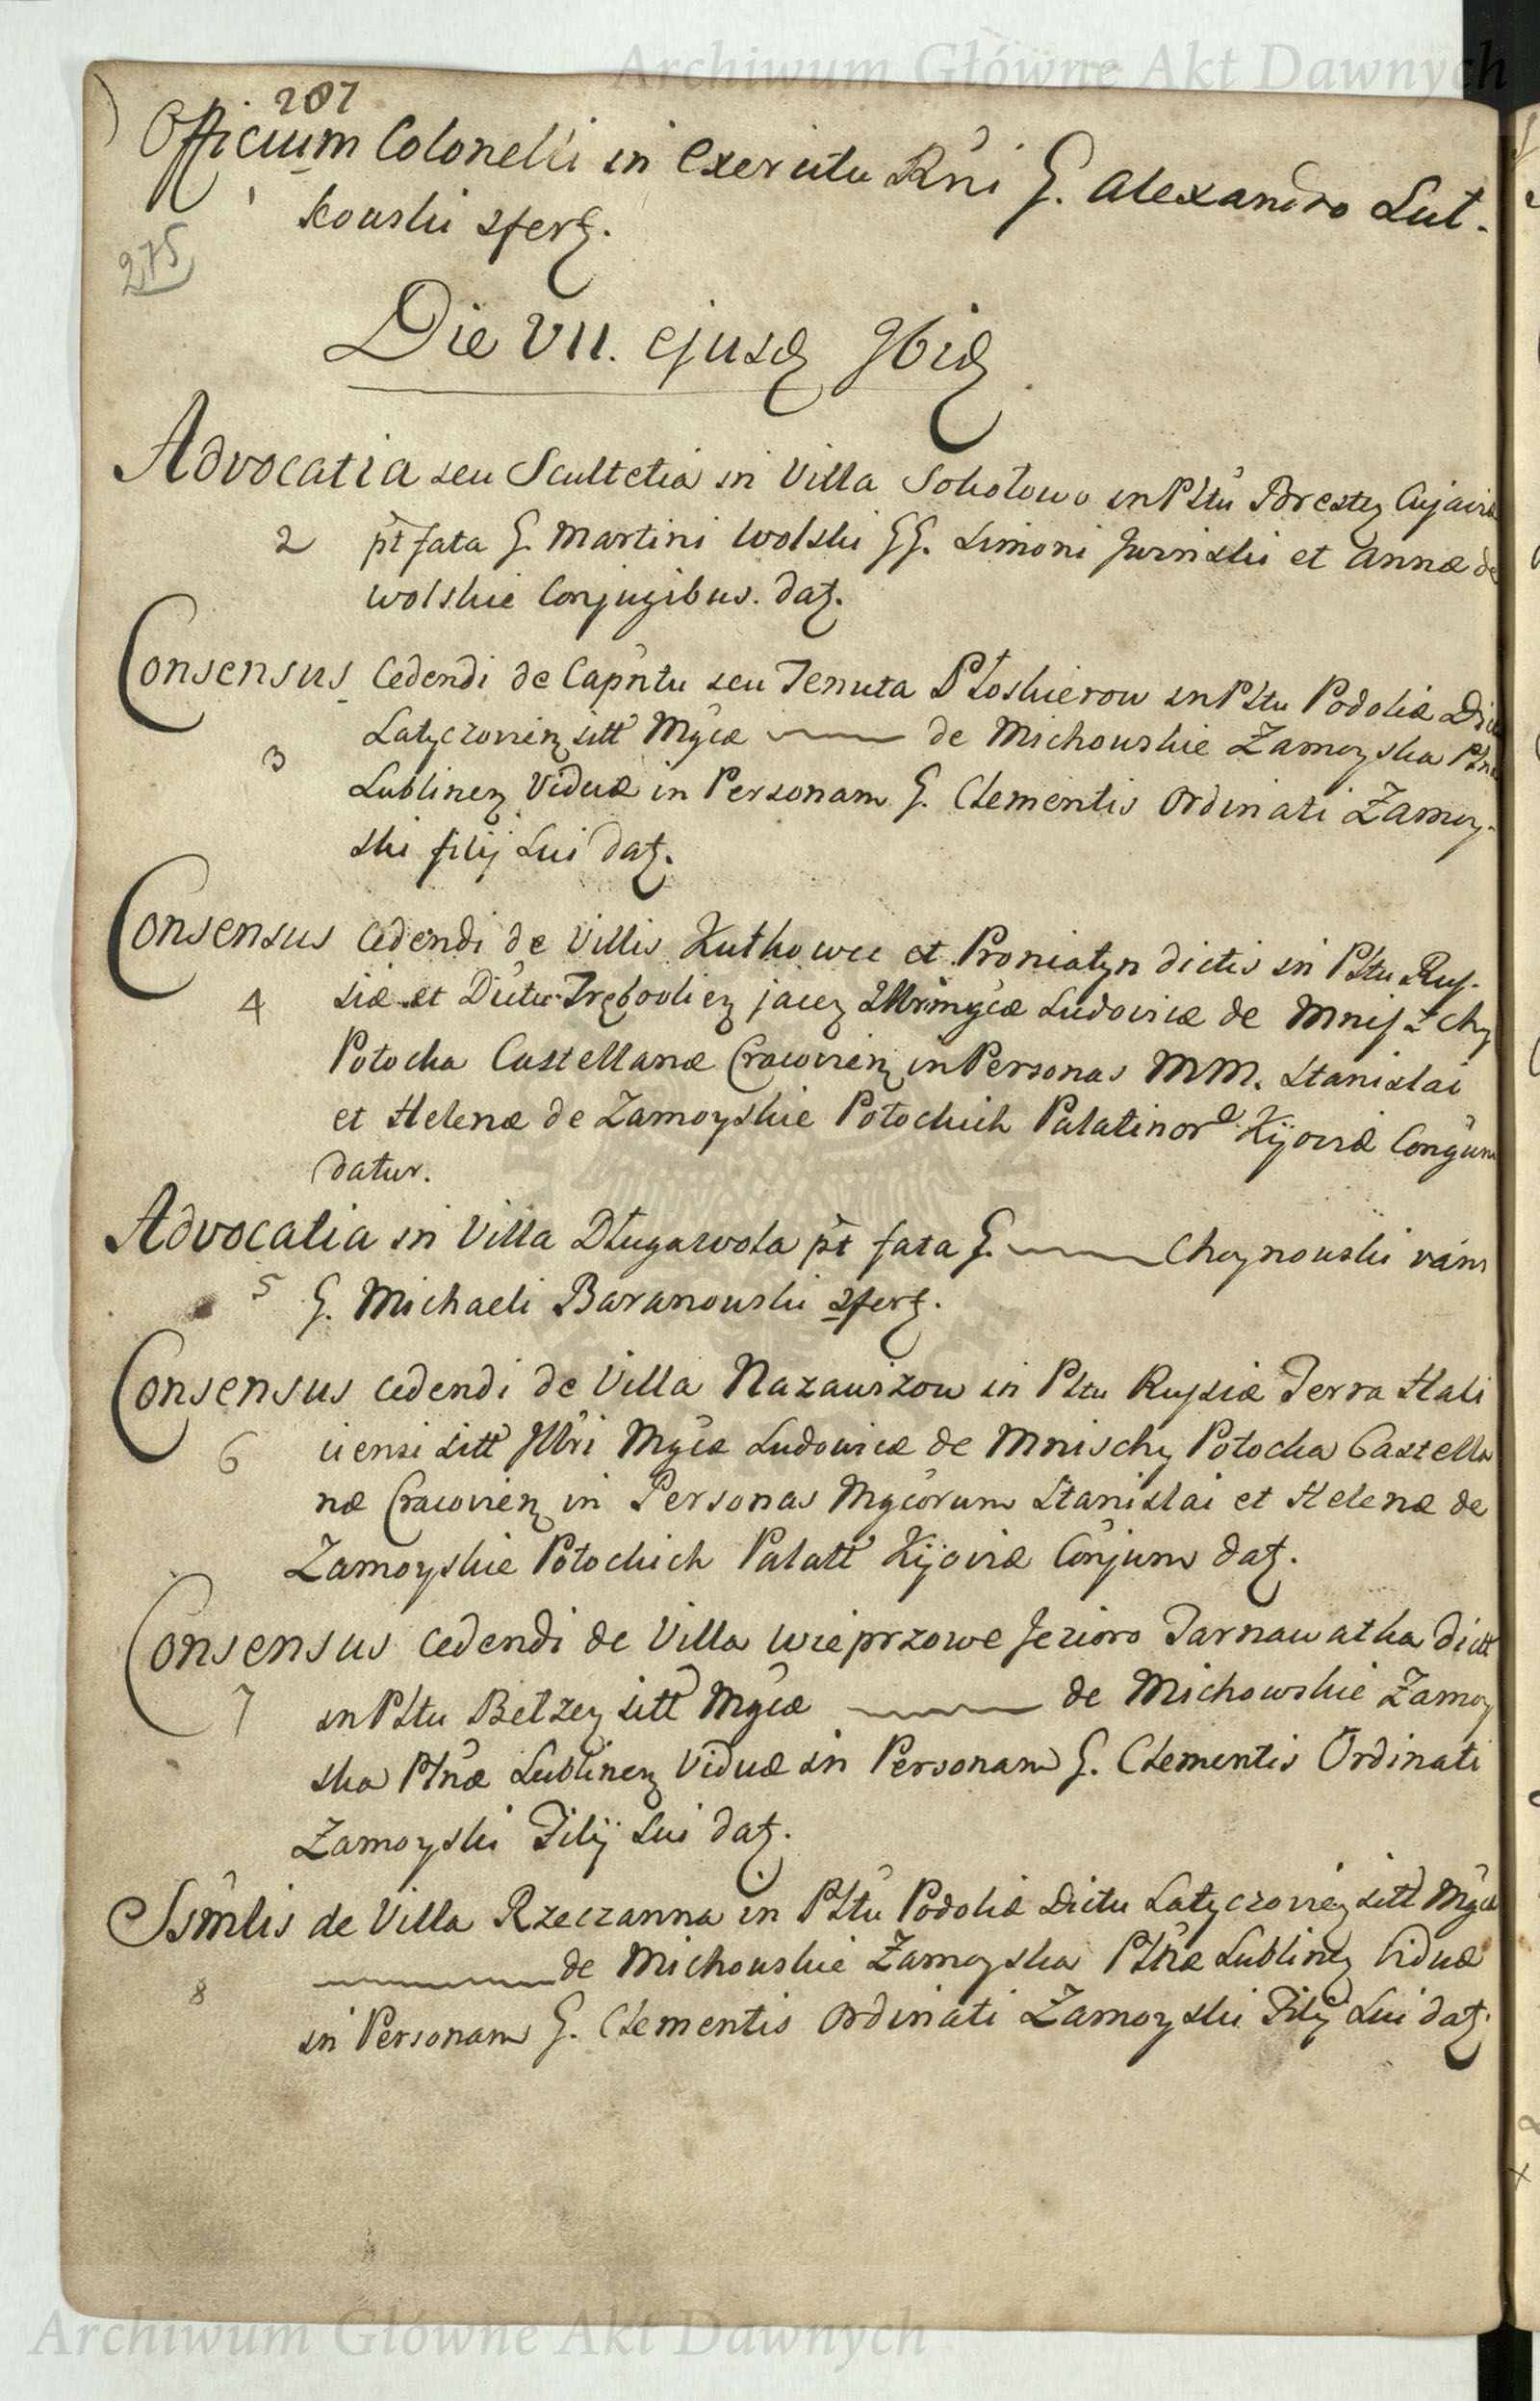 Archiwum Główne Akt Dawnych
207
Officium Colonelli in Exercitu Rni G. Alexandro Lut-
1
kowski sfert.
275
Die VII. ejusdem 9bris
Advocatia seu Scultetia in Villa Sokołowo in Pltu Bresten Cujaviæ
2 pt fata G. Martini Wolski GG. Simoni et Annæ de
Wolskie Conjugibus. datt.
Consensus Cedendi de Capntu seu Tenuta Płoskierow in Pltu Podoliæ
3 Latyczovien sitt Mgcæ de Michowskie Zamoyska Pln
Lublinen Viduæ in Personam G. Clementis Ordinati Zamoy-
ski filij sui datt.
Consensus Cedendi de Villis Kutkowce et Proniatyn dictis in Pltu Rus-
4 siæ et Dictu Trębovlien jacen Illrimgcæ Ludovicæ de Mniszchy
Potocka Castellanæ Cracovien in Personas MM. Stanislai
et Helenæ de Zamoyskie Potockich Palatinor Kijoviæ Conjum
datur.
Advocatia in Villa Długawola pt fata G. Choynowski vam
5 G. Michaeli Baranowski sfert.
Consensus cedendi de Villa Nazawizow in Pltu Russiæ Terra Hali
6 ciensi sitt Illri Mgcæ Ludovicæ de Mnischy Potocka Castella
næ Cracovien in Personas Mgcorum Stanislai et Helenæ de
Zamoyskie Potockich Palatt Kijoviæ Conjum datt.
Consensus cedendi de Villa Wieprzowe Jezioro Tarnawatka dictt
7 in Pltu Belzen sitt Mgcæ de Michowskie Zamoy
ska Plnæ Lublinen Viduæ in Personam G. Clementis Ordinati
Zamoyski Filij sui datt.
Ssmlis de Villa Rzeczanna in Pltu Podoliæ Dictu Latyczovien sitt Mgcæ
8 de Michowskie Zamoyska Pltnæ Lublinen Viduæ
in Personam G. Clementis Ordinati Zamoyski Filij sui datt.
Archiwum Główne Akt Dawnych